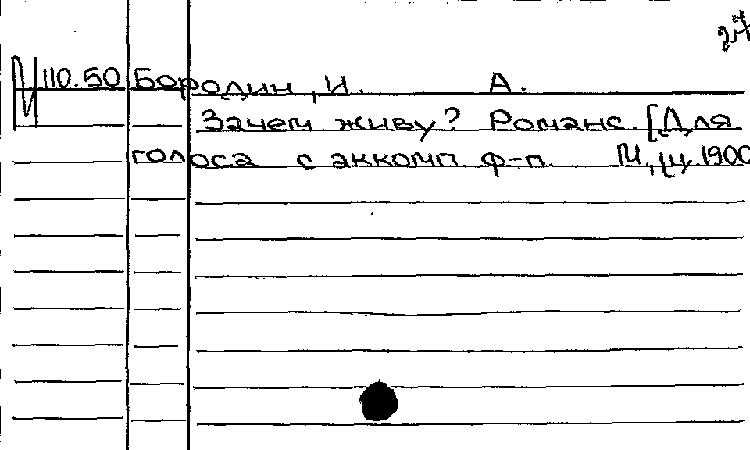 24
110.50 Бородин, И. А.
Зачем живу? Романс. [Для
голоса с аккомп ф-п. М, ц. 1900